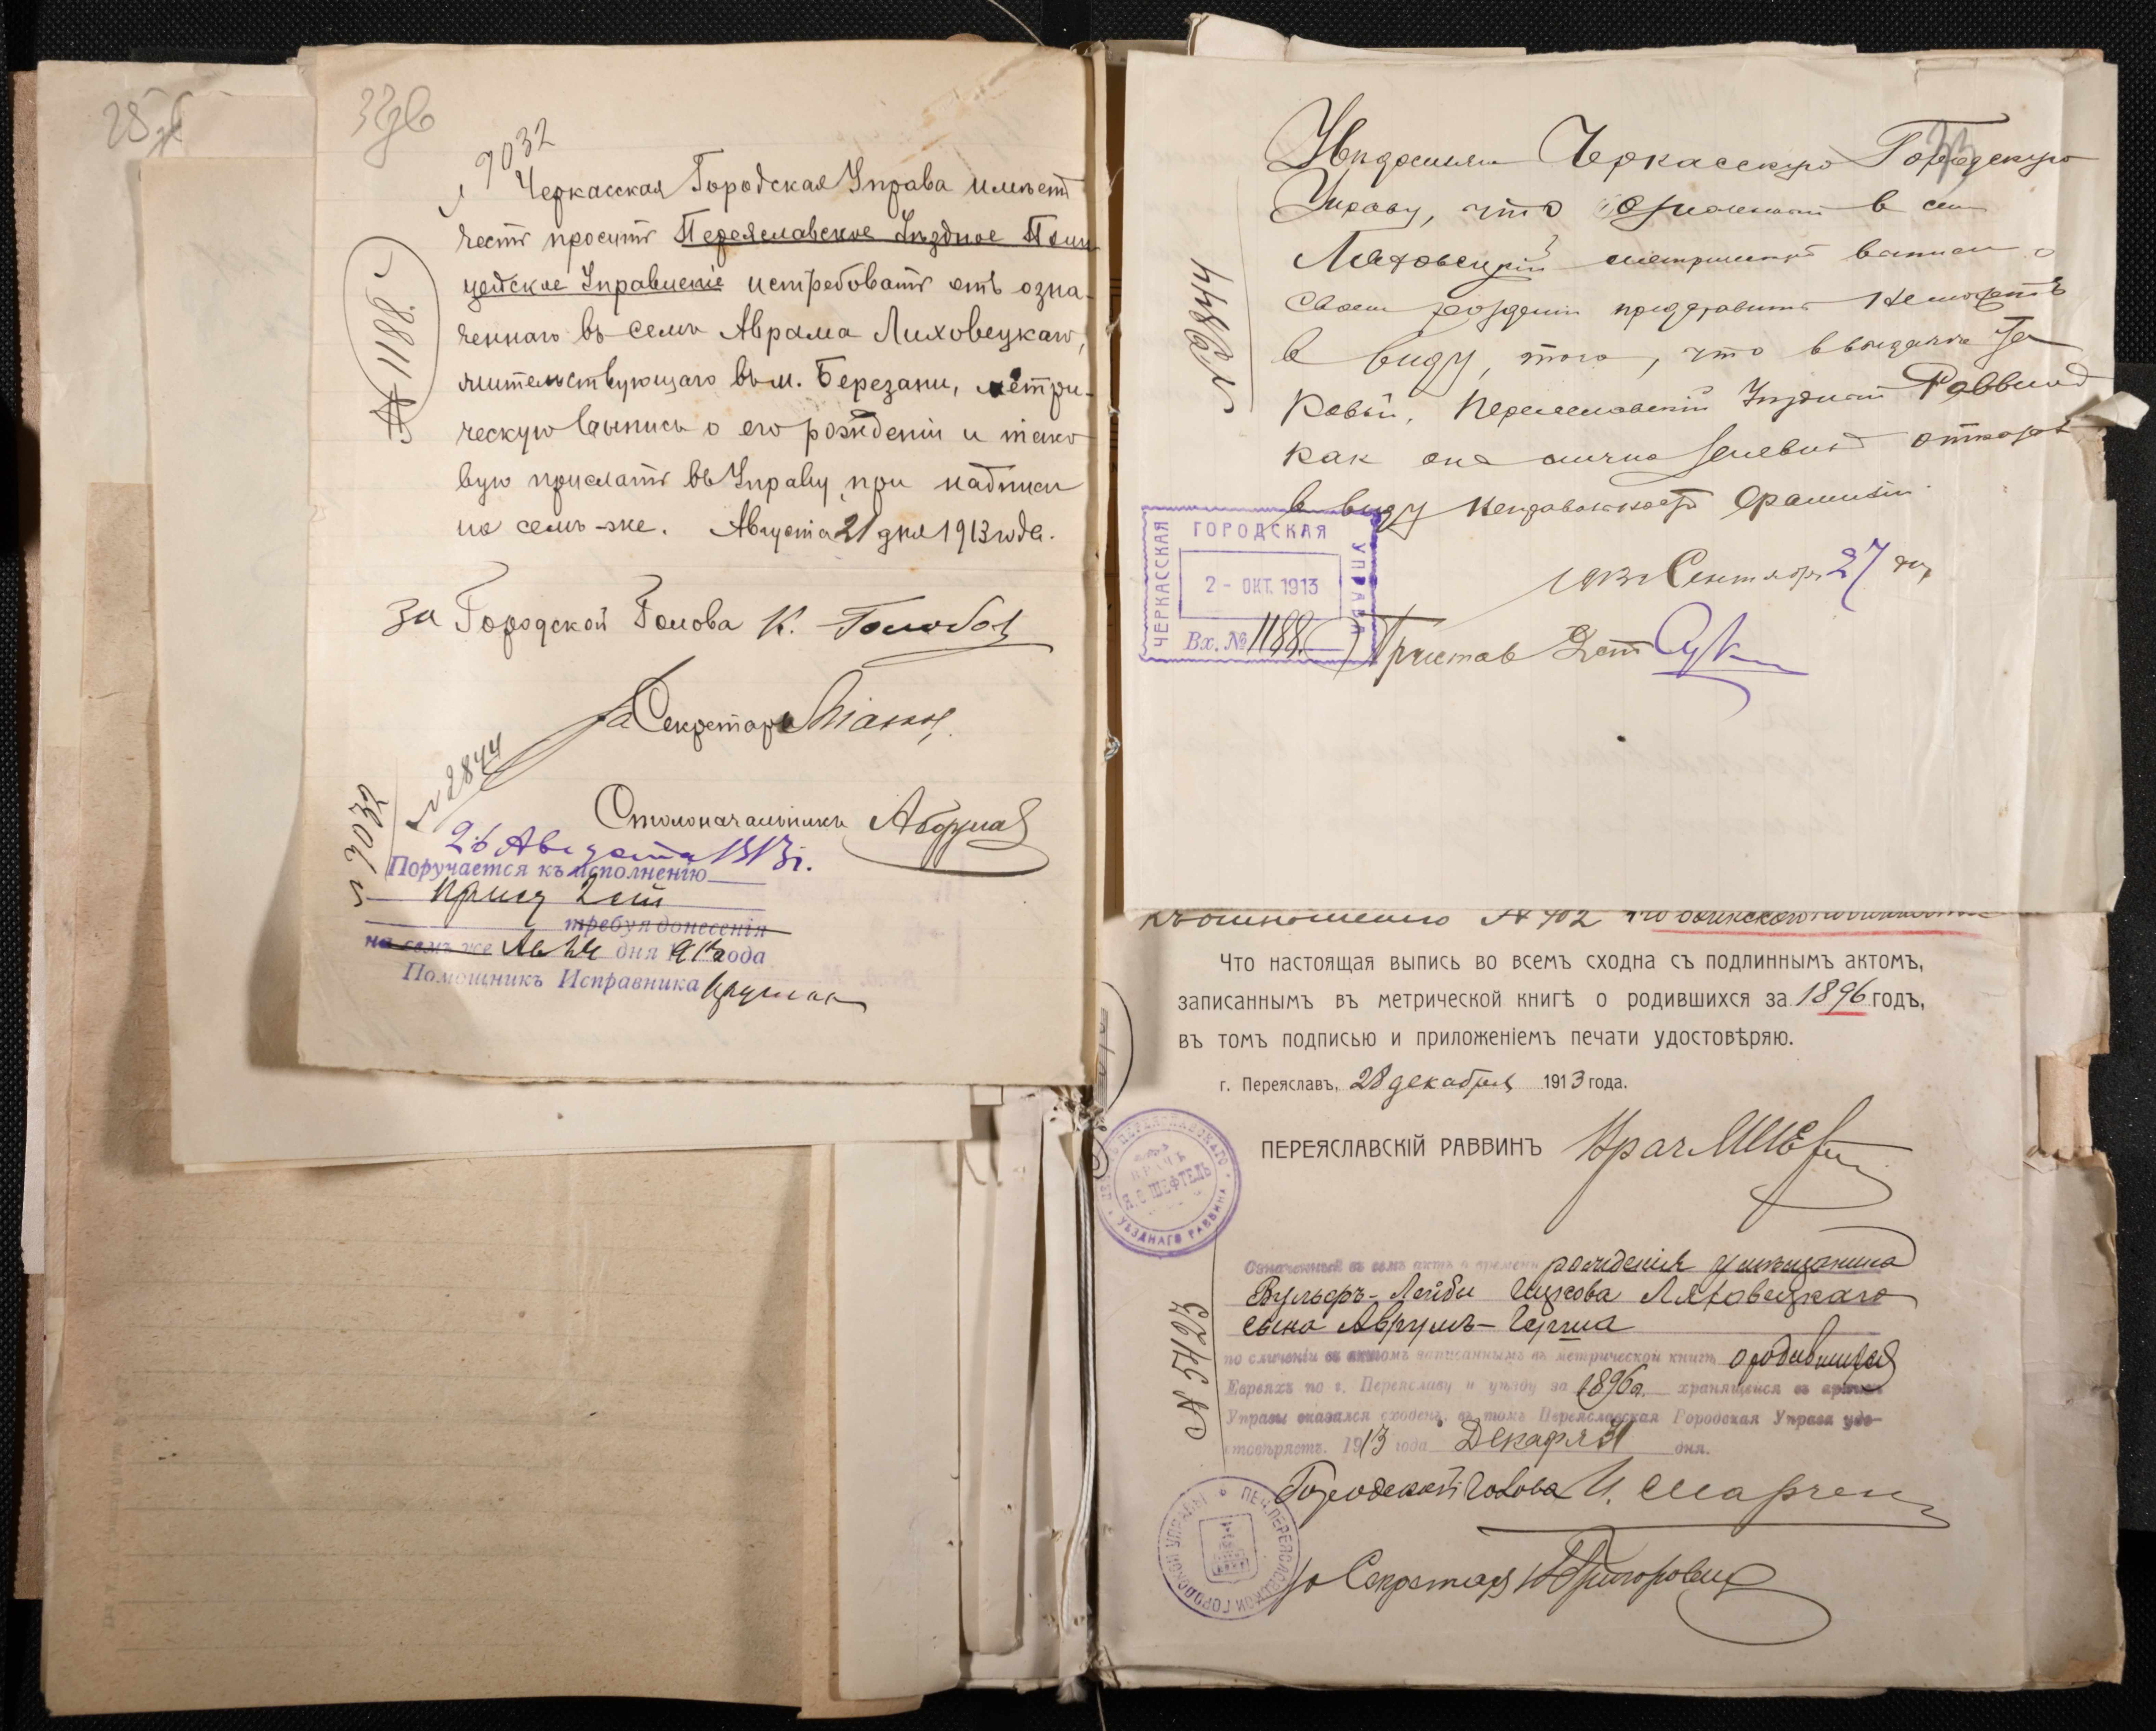 28 зв
32 зв
№ 9032
Черкасская Городская Управа имѣетъ
честь проситъ Переяславское Уѣздное Поли-
цейское Управленіе истребовать отъ озна-
ченнаго въ семъ Аврама Лиховецкаго,
жительствующаго въ м. Березани, метри-
ческую выпись о его рожденіи и тако-
вую прислать въ Управу при надписи
на семъ-же. Августа 21 дня 1913 года.
№ 11188.
За Городской Голова К.
За Секретаря
№ 2844
Столоначальникъ
№ 9032
26 Августа 1913 г.
Поручается къ исполненію
Прист 2 ст
требуя донесенія
на семъ же Ав 24 дня 1913 года
Помощникъ Исправника
33
Черкасскую Городскую
Управу, что в сем
Ляховецкий метрической выписи о
своем рождении представить не может
в виду, того, что в выдаче та
ковой, Переяславский Уездный Раввин
как он лично отказал
в виду
№ 2844
1913 г Сентября 27 дн
Пристав 2 ст
ЧЕРКАССКАЯ
ГОРОДСКАЯ
УПРАВА
2 - ОКТ. 1913
Вх. № 1188.
къ отношенію № 402 по воинской повинности
Что настоящая выпись во всемъ сходна съ подлиннымъ актомъ,
записаннымъ въ метрической книгѣ о родившихся за 1896 годъ,
въ томъ подписью и приложеніемъ печати удостовѣряю.
г. Переяславъ, 28 декабря 1913 года.
ПЕРЕЯСЛАВСКІЙ РАВВИНЪ Врач
ПЕРЕЯСЛАВСКАГО
ВРАЧЪ
ШЕФТЕЛЬ
УѢЗДНАГО РАВВИНА
Означенный въ семъ актъ о времени рожденія у мѣщанина
Вульфъ-Лейбы Ицкова Ляховецкаго
сына Аврумъ-Герша
по сличеніи съ актомъ записаннымъ въ метрической книгѣ о родившихся
Евреяхъ по г. Переяславу и уѣзду за 1896 г. хранящейся въ архивѣ
Управы оказался сходенъ, въ томъ Переяславская Городская Управа удо-
стовѣряетъ. 1913 года Декабря 31 дня.
№ 5125
Городской Голова И. Марчен
за Секретаря Григорович
ПЕЧ. ПЕРЕЯСЛОВСКОЙ ГОРОДСКОЙ УПРАВЫ